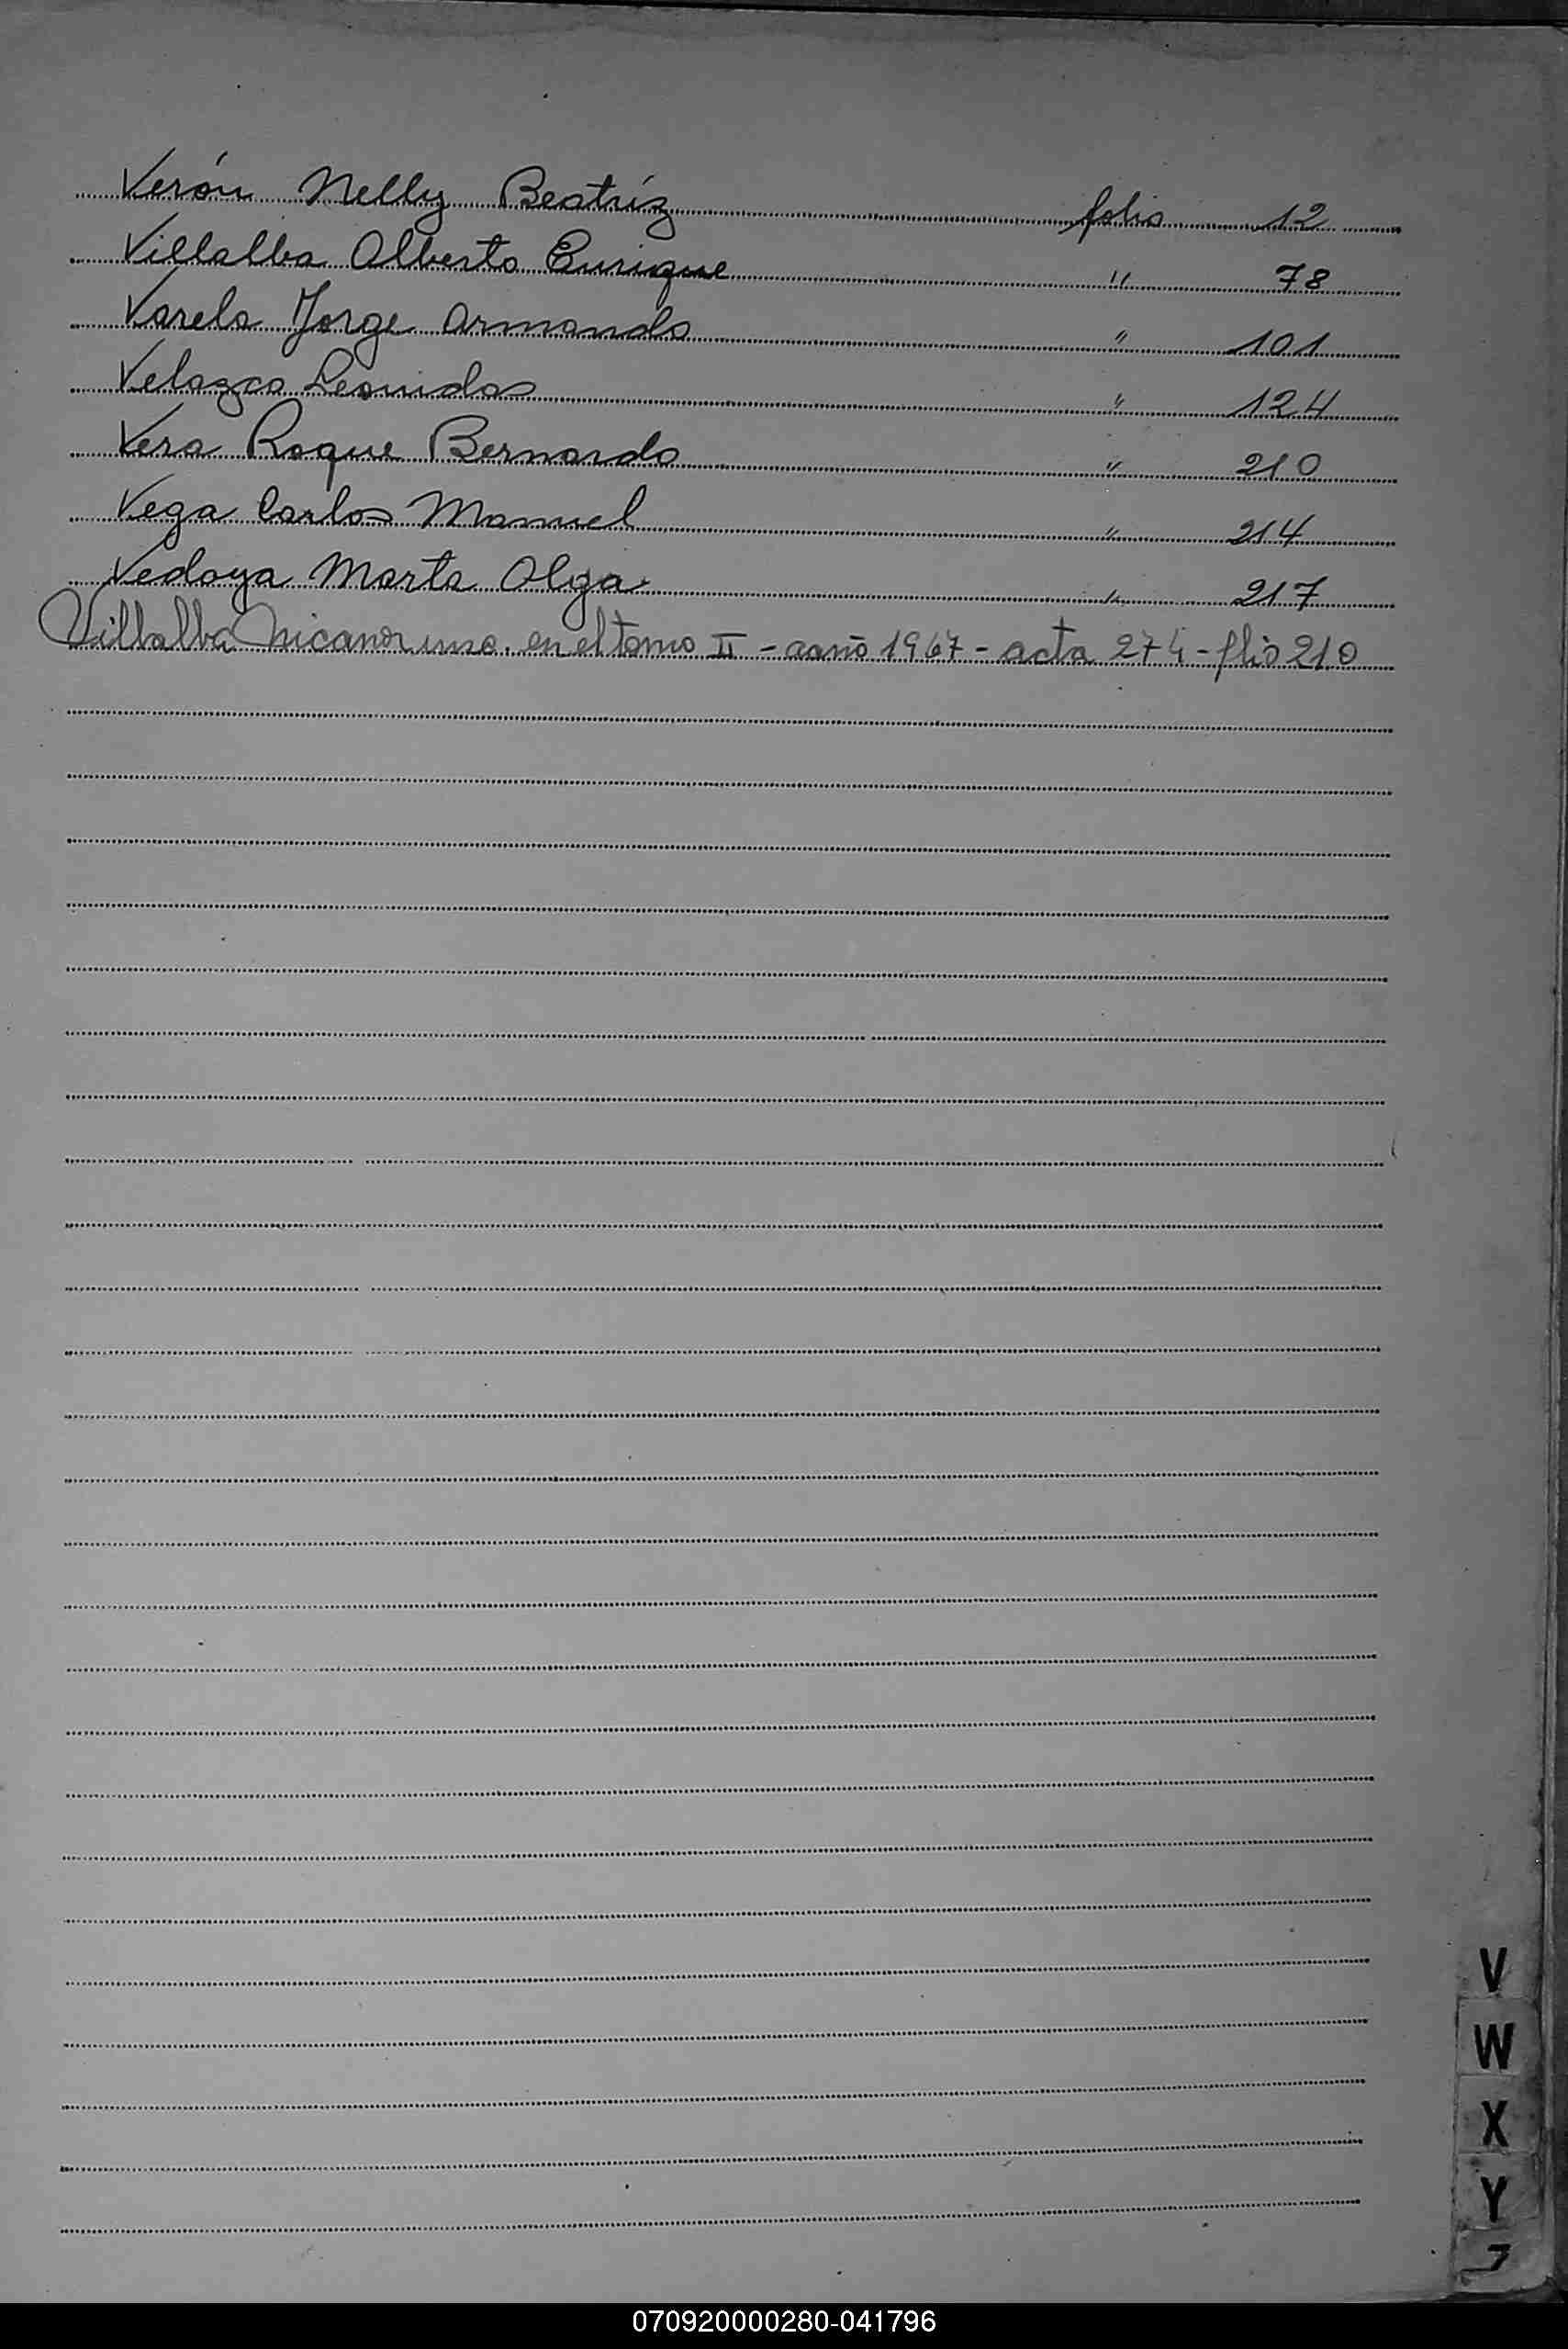 Verón Nelly Beatríz folio 12
Villalba Alberto Enrique " 78
Varela Jorge Armando " 101
Velazco Leonidas " 124
Vera Roque Bernardo " 210
Vega Carlos Manuel " 214
Vedoya Marta Olga " 217
Villalba Nicanor en el tomo II - año 1967 - acta 274 - flio 210
V
W
X
Y
Z
070920000280-041796